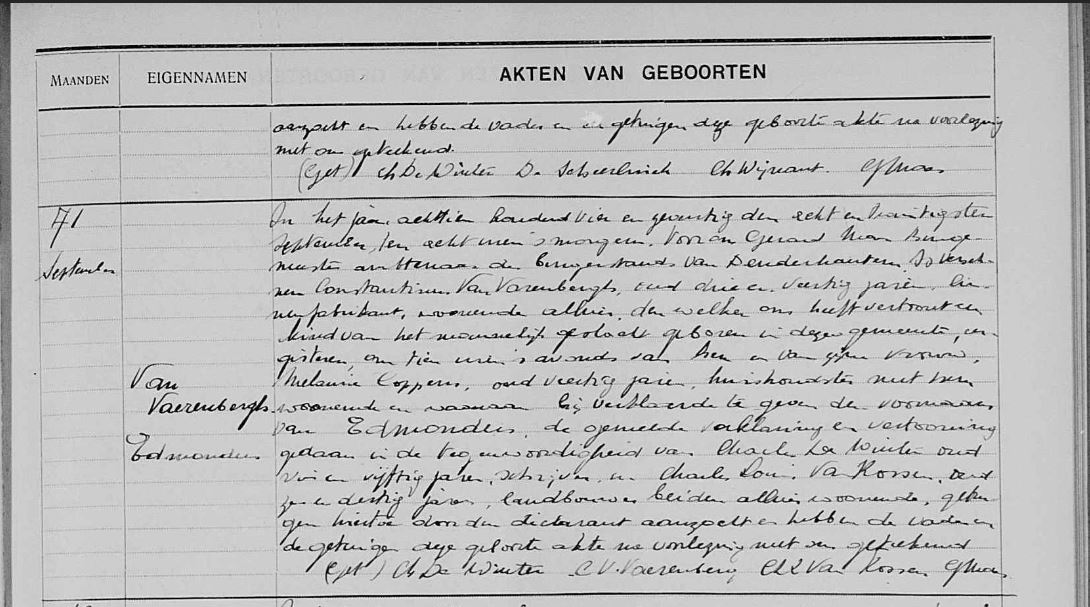 MAANDEN EIGENNAMEN AKTEN VAN GEBOORTEN
aanzocht en hebben de vader en de getuigen deze geboorte akte na voorlezing
met ons geteekend.
(Get) Ch De Winter De Scheerlinck Ch Wijnant. G Maes
71
September
Van
Vaerenbergh
Edmondus
In het jaar achttien honderd vier en geventig den acht en twintigsten
September, ten acht uren 's morgens. Voor on Gerard Maes Burge-
meester ambtenaar den burgerstands van Denderhautem. Is versche-
nen Constantinus Van Varenbergh, oud drie en veertig jaren, lin-
nenfabrikant, woonende alhier, den welken ons heeft vertoont een
kind van het mannelijk geslacht geboren in dezen gemeente, en
gisteren, om tien uren 's avonds van hem en van zijne vrouw,
Melanie Coppens, oud veertig jaren, huishoudster met hem
woonende en waaraan hij verklaarde te geven den voornaam
van Edmondus, de gemelde verklaring en vertooning
gedaan in de tegenwoordigheid van Charles De Winter oud
vier en vijftig jaren, schrijver, en Charles Louis Van Rossen, oud
zes en dertig jaren, landbouwer beiden alhier woonende, getui-
gen hiertoe door den declarant aanzocht en hebben de vader en
de getuigen deze geboorte akte na voorlezing met ons geteekend
(Get) Ch De Winter C. V. Vaerenberg Ch L Van Rossen G Maes.